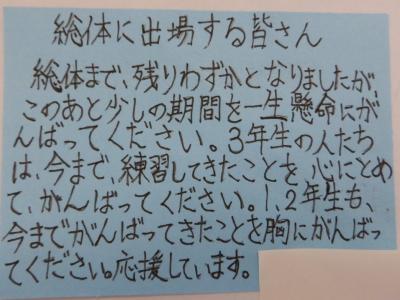 総体に出場する皆さん
総体まで、残りわずかとなりましたが、
このあと少しの期間を一生懸命にが
んばってください。3年生の人たち
は、今まで、練習してきたことを、心にとめ
て、がんばってください。1、2年生も、
今までがんばってきたことを胸にがんばっ
てください。応援しています。